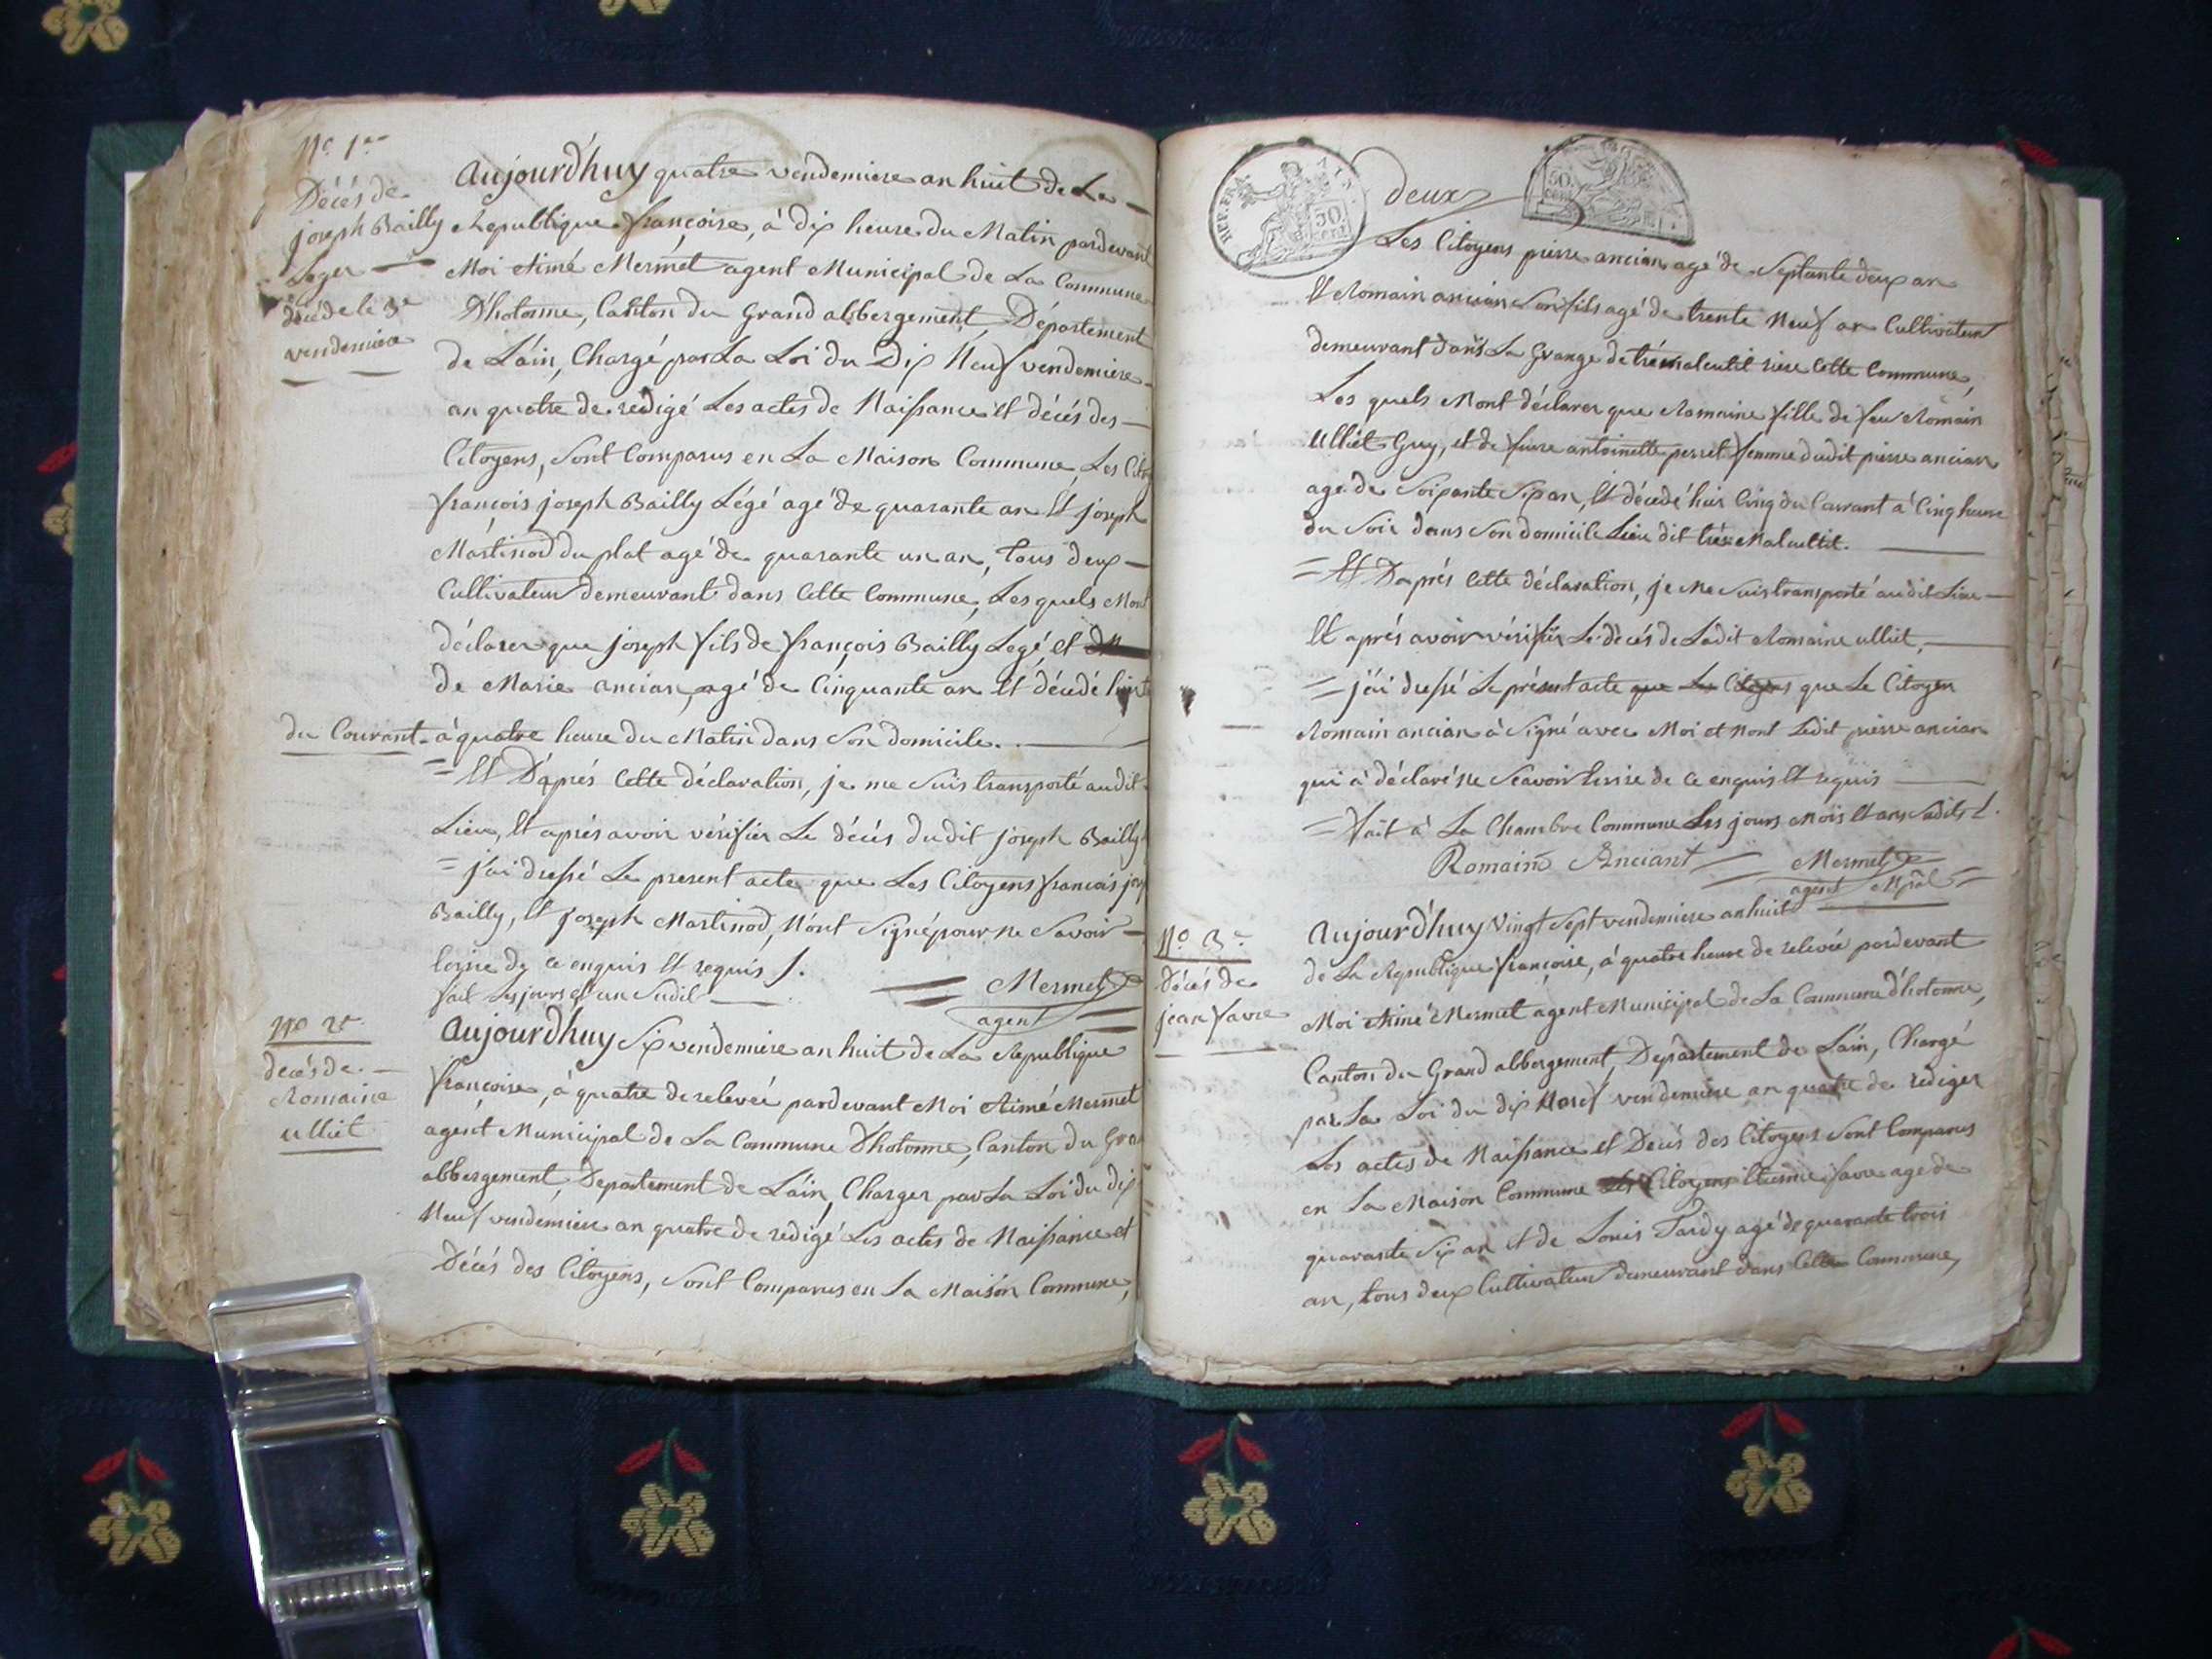 No. 1er
Décés de
joseph Bailly
Leger
décédé le 3e
vendemiere
Aujourd'huy quatre vendemiere an huit de La
Republique françoise, à dix heure du Matin pardevant
Moi Aimé Mermet agent Municipal de La Commune
D'hotonne, Canton du Grand abbergement, Département
de Láin, Chargé par La Loi du Dix Neuf vendemiere
an quatre de redigé Les actes de Naissance et décés des
Citoyens, Sont Comparus en La Maison Commune, Les
françois joseph Bailly Légé agé de quarante an Et joseph
Martinod du plat agé de quarante un an, tous deux
Cultivateur demeurant dans Cette Commune, Les quels Mont
déclarer que joseph fils de françois Bailly Legé, et
de Marie ancian, agé de Cinquante an Et décédé
du Courant à quatre heure du Matin dans Son domicile.
= Et D'aprés Cette déclaration, je me Suis transporté audit
Lieu, Et aprés avoir vérifier Le décés dudit joseph Bailly
= j'ai dressé Le present acte que Les Citoyens francois
Bailly, Et joseph Martinod, N'ont Signé pour ne Savoir
de ce enquis Et requis
fait Les jours et an Sudit
Mermet
agent
No 2e
decés de
Romaine
ulliet
Aujourdhuy Six vendemiere an huit de La Republique
françoise, à quatre de relevée pardevant Moi Aimé Mermet
agent Municipal de La Commune D'hotonne, Canton du
abbergement, Departement de Láin, Charger par La Loi du dix
Neuf vendemiere an quatre de redigé Les actes de Naissance et
Décés des Citoyens, Sont Comparus en La Maison Commune,
REP. FRA.
50.
cent
deux
50.
cent
Les Citoyens pierre ancian agé de Septante deux an
Et Romain ancian Son fils agé de trente Neuf an Cultivateur
demeurant dans La Grange de rière Cette Commune,
Les quels Mont déclarer que Romaine fille de feu Romain
Ulliet Guy, et de fuere antoinette perret femme dudit pierre ancian
agé de Soixante Six an, Et décedé hier Cinq du Courant à Cinq heure
du Soir dans Son domicile Lieu dit
= Et D'aprés Cette déclaration, je Me Suis transporté audit Lieu
Et aprés avoir vérifier Le décés de Ladit Romaine ulliet,
= j'ái dressé Le présent acte que Les Citoyens que Le Citoyen
Romain ancian à Signé avec Moi et Nont Ledit pierre ancian
qui à déclaré ne Scavoir Ecrire de Ce enquis Et requis
= Fait à La Chambre Commune Les jours Mois Et ans Sudits
Romain Anciant
Mermet
agent Mpal
No. 3e
Décés de
jean favre
Aujourd'huy vingt Sept vendemiere an huit
de La Republique françoise, à quatre heure de relevée pardevant
Moi Aimé Mermet agent Municipal de La Commune d'hotonne,
Canton du Grand abbergement, Departement de Láin, Chargé
par La Loi du dix Neuf vendemiere an quatre de rediger
Les actes de Naissance et Decés des Citoyens Sont Comparus
en La Maison Commune Les Citoyens favre age de
quarante Six an et de Louis Tardy agé de quarante trois
an, tous deux Cultivateur demeurant dans Cette Commune,